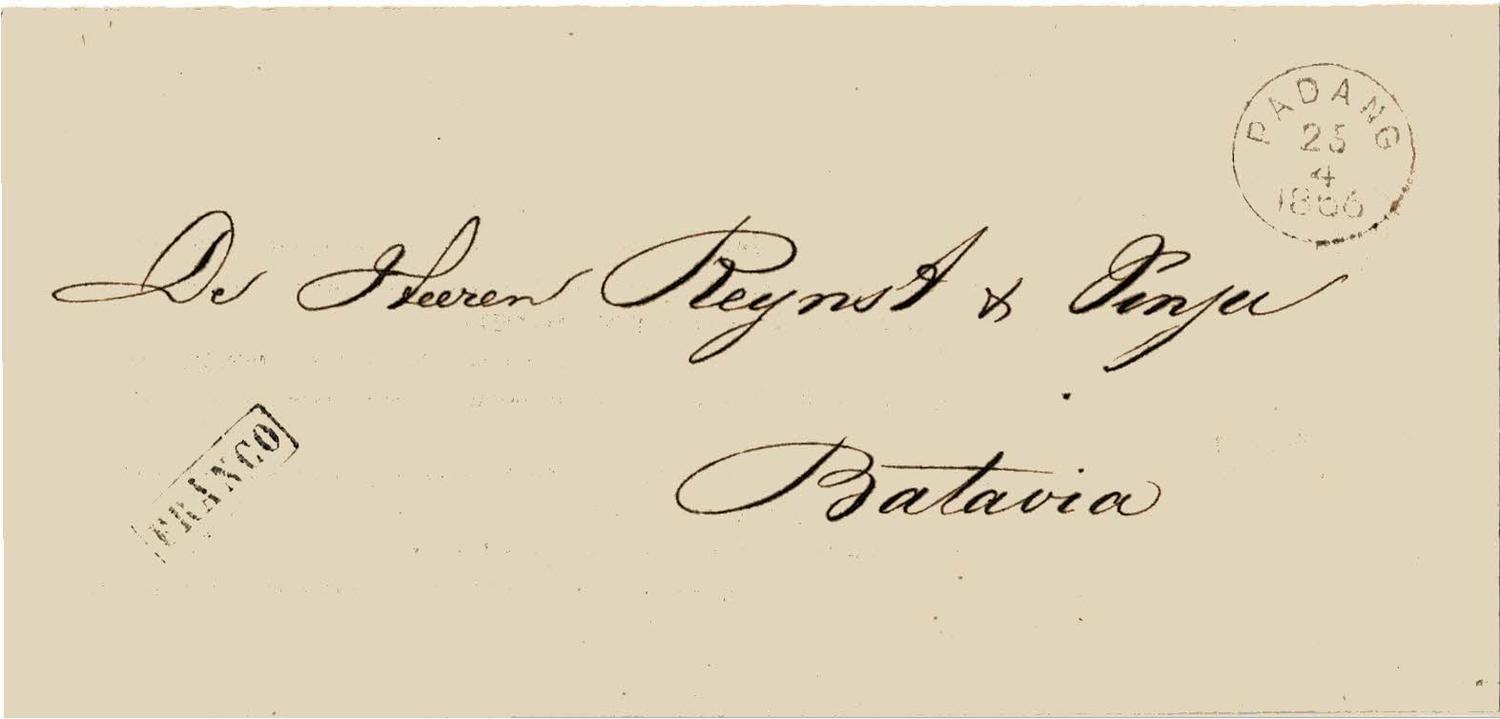 PADANG
25
4
1866
De Heeren Reynst & Vinju
FRANCO
Batavia